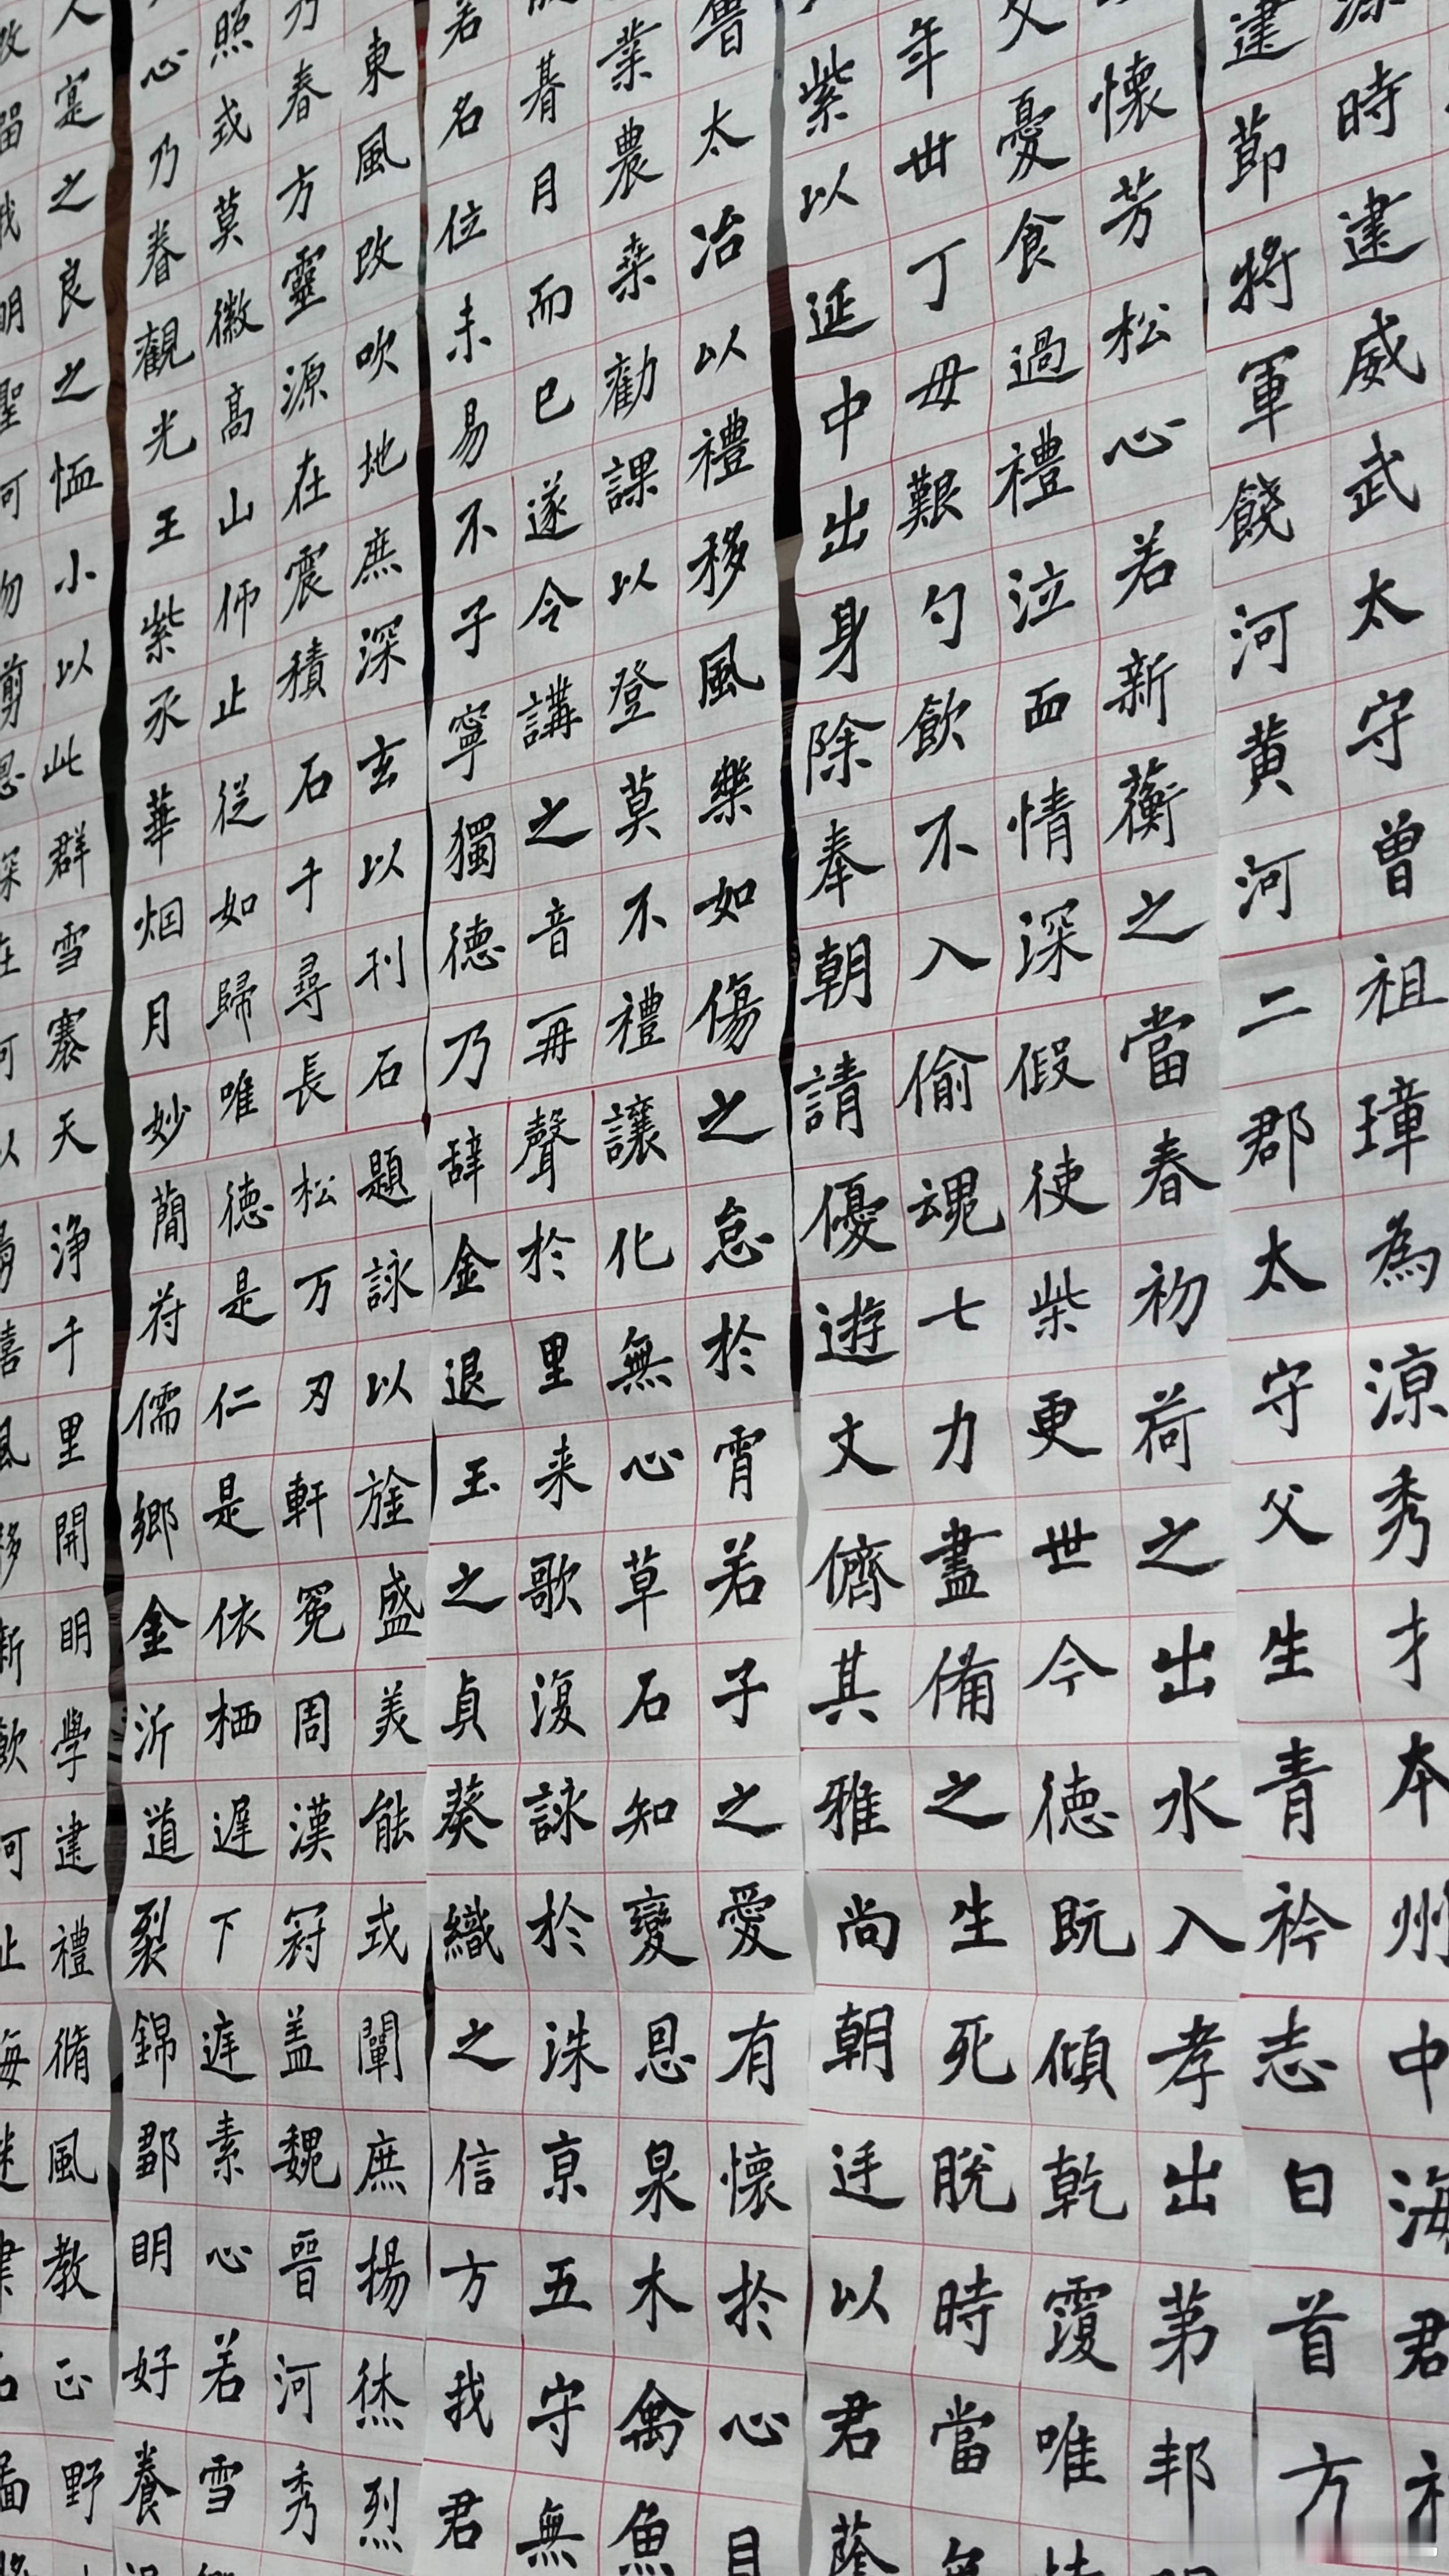 時建威武太守曾祖璋為涼秀才本州中海君
建節將軍饒河黃河二郡太守父生青衿志白首方
懷芳松心若新蘅之當春初荷之出水入孝出第邦
父憂食過禮泣血情深假使柴更世今德既傾乾覆唯
年丗丁母艱勺飲不入偷魂七力盡備之生死脫時當
紫以延中出身除奉朝請優遊文儕其雅尚朝廷以君蔭
魯太治以禮移風樂如傷之怠於霄若子之愛有懷於心目
業農桒勸課以登莫不禮讓化無心草石知變恩泉木禽魚
朞月而已遂令講之音再聲於里来歌復詠於洙京五守無
若名位未易不子寧獨德乃辞金退玉之貞葵織之信方我君
東風改吹地庶深玄以刊石題詠以旌盛美能或闡庶揚烋烈
乃春方靈源在震積石千尋長松万刃軒冕周漢冠盖魏晉河秀
照或莫徽高山仰止從如歸唯德是仁是依栖遲下庭素心若雪
心乃眷觀光王紫承華烟月妙簡苻儒鄉金沂道裂錦鄒明好養
人寔之良之恤小以此群雪褰天净千里開明學建禮脩風教正野